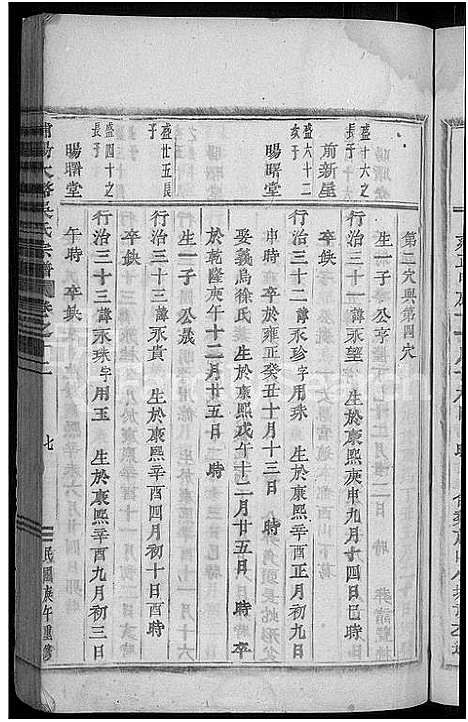 第二穴與第四穴
生一子 公亨
盛十六之
長子
前新屋
行治三十一諱永望 生於康熙庚申九月十四日巳時
卒缺
盛六十二
次子
暘曙堂
行治三十二諱永珍字用珠 生於康熙辛酉正月初九日
申時 卒於雍正癸丑十月十三日 時
娶義烏徐氏 生於康熙戊午十二月廿五日 時 卒
於乾隆庚午十二月廿五日 時
生一子 公晟
盛廿五長
子
行治三十三諱永貴 生於康熙辛酉四月初十日酉時
卒缺
盛四十之
長子
暘曙堂
行治三十三諱永珠字用玉 生於康熙辛酉九月初三日
午時 卒缺
吳氏宗譜 卷之十二
七
民國庚午重修